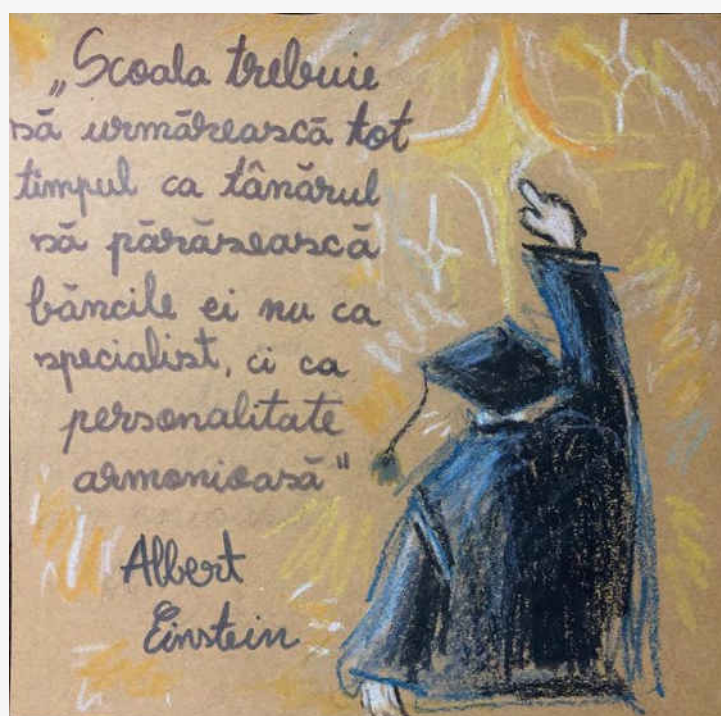 „Scoala trebuie
să urmărească tot
timpul ca tânărul
să părăsească
băncile ei nu ca
specialist, ci ca
personalitate
armonioasă"
Albert
Einstein